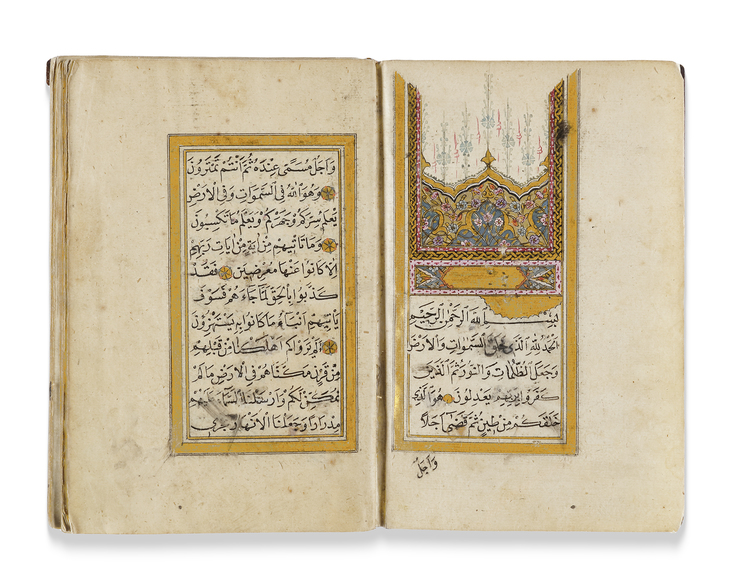 بسم الله الرحمن الرحيم
الحمد لله الذي خلق السموات والارض
وجعل الظلمات والنور ثم الذين
كفروا بربهم يعدلون هو الذي
خلقكم من طين ثم قضى اجلا
واجل
واجل مسمى عنده ثم انتم تمترون
وهو الله في السموات وفي الارض
يعلم سركم وجهركم ويعلم ما تكسبون
وما تاتيهم من اية من ايات ربهم
الا كانوا عنها معرضين فقد
كذبوا بالحق لما جاءهم فسوف
ياتيهم انباء ما كانوا به يستهزؤن
الم يروا كم اهلكنا من قبلهم
من قرن مكناهم في الارض ما لم
نمكن لكم وارسلنا السماء عليهم
مدرارا وجعلنا الانهار تجري